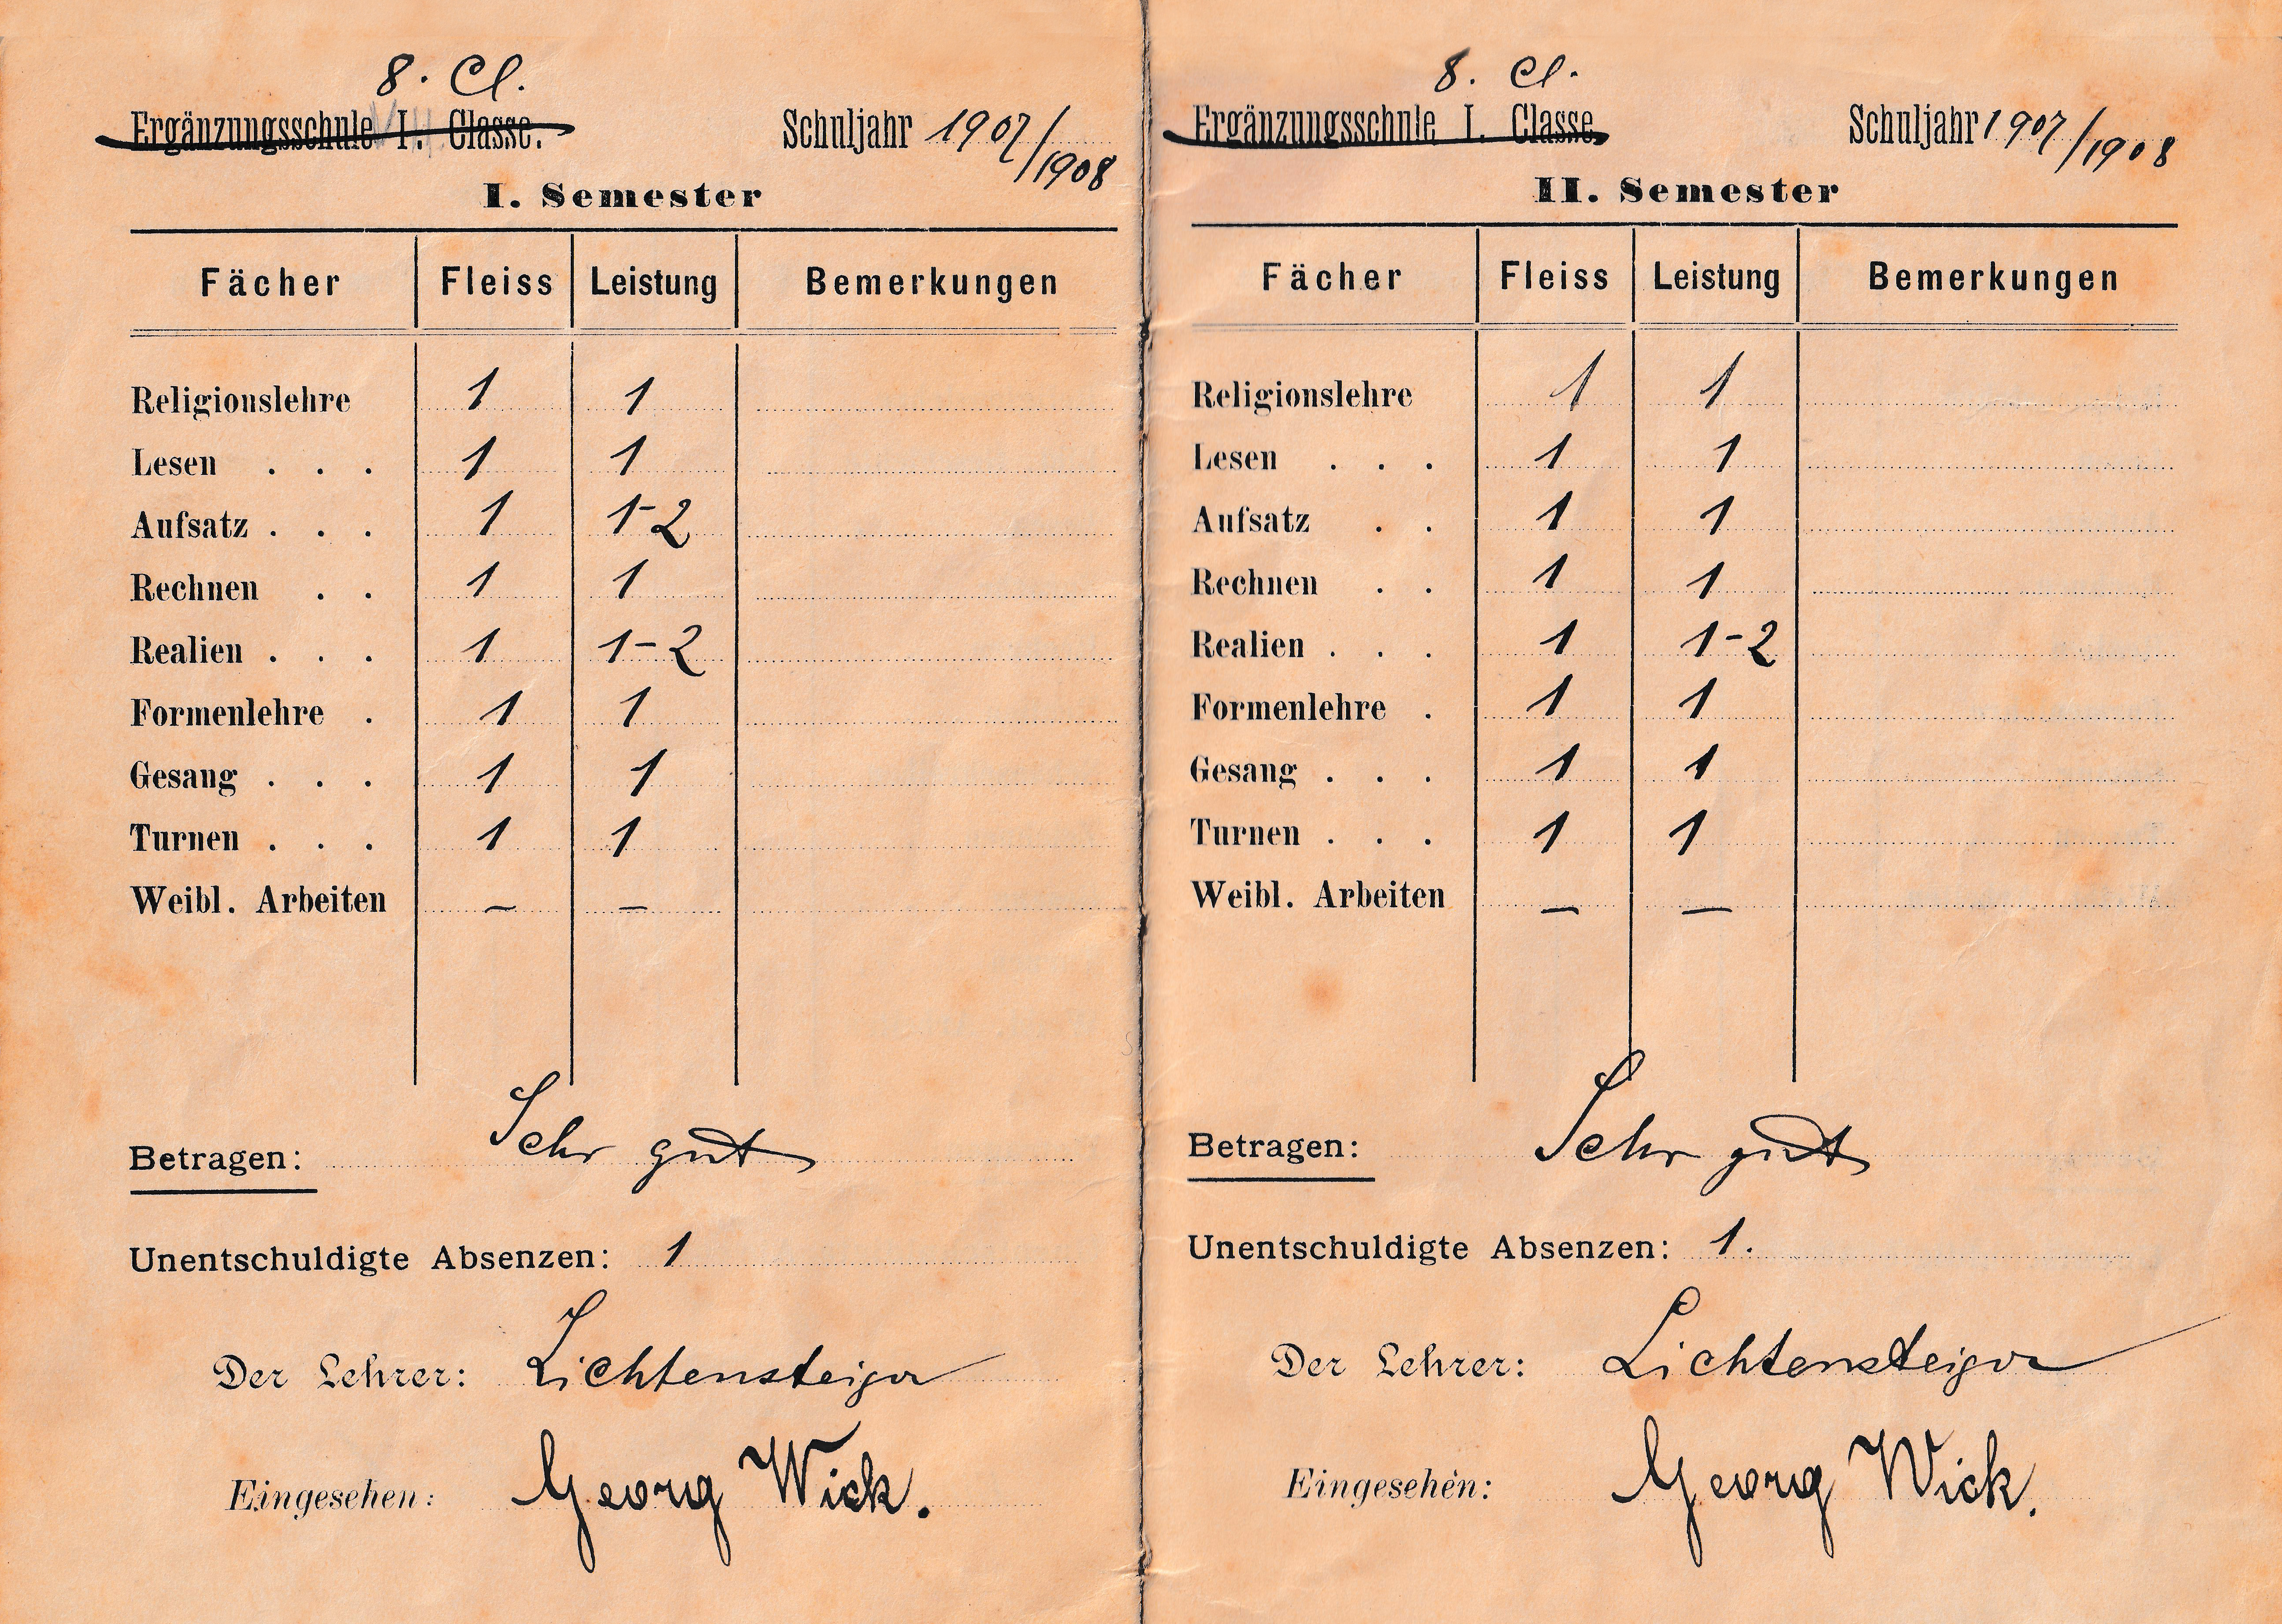 8. Cl.
Ergänzungsschule I. Classe. Schuljahr 1907/1908
I. Semester
Fächer Fleiss Leistung Bemerkungen
Religionslehre 1 1
Lesen . . . 1 1
Aufsatz . . . 1 1-2
Rechnen . . 1 1
Realien . . . 1 1-2
Formenlehre . 1 1
Gesang . . . 1 1
Turnen . . . 1 1
Weibl. Arbeiten – –
Betragen: Sehr gut
Unentschuldigte Absenzen: 1
Der Lehrer: Lichtensteiger
Eingesehen: Georg Wick.
8. Cl.
Ergänzungsschule I. Classe. Schuljahr 1907/1908
II. Semester
Fächer Fleiss Leistung Bemerkungen
Religionslehre 1 1
Lesen . . . 1 1
Aufsatz . . 1 1
Rechnen . . 1 1
Realien . . . 1 1-2
Formenlehre . 1 1
Gesang . . . 1 1
Turnen . . . 1 1
Weibl. Arbeiten – –
Betragen: Sehr gut
Unentschuldigte Absenzen: 1.
Der Lehrer: Lichtensteiger
Eingesehen: Georg Wick.